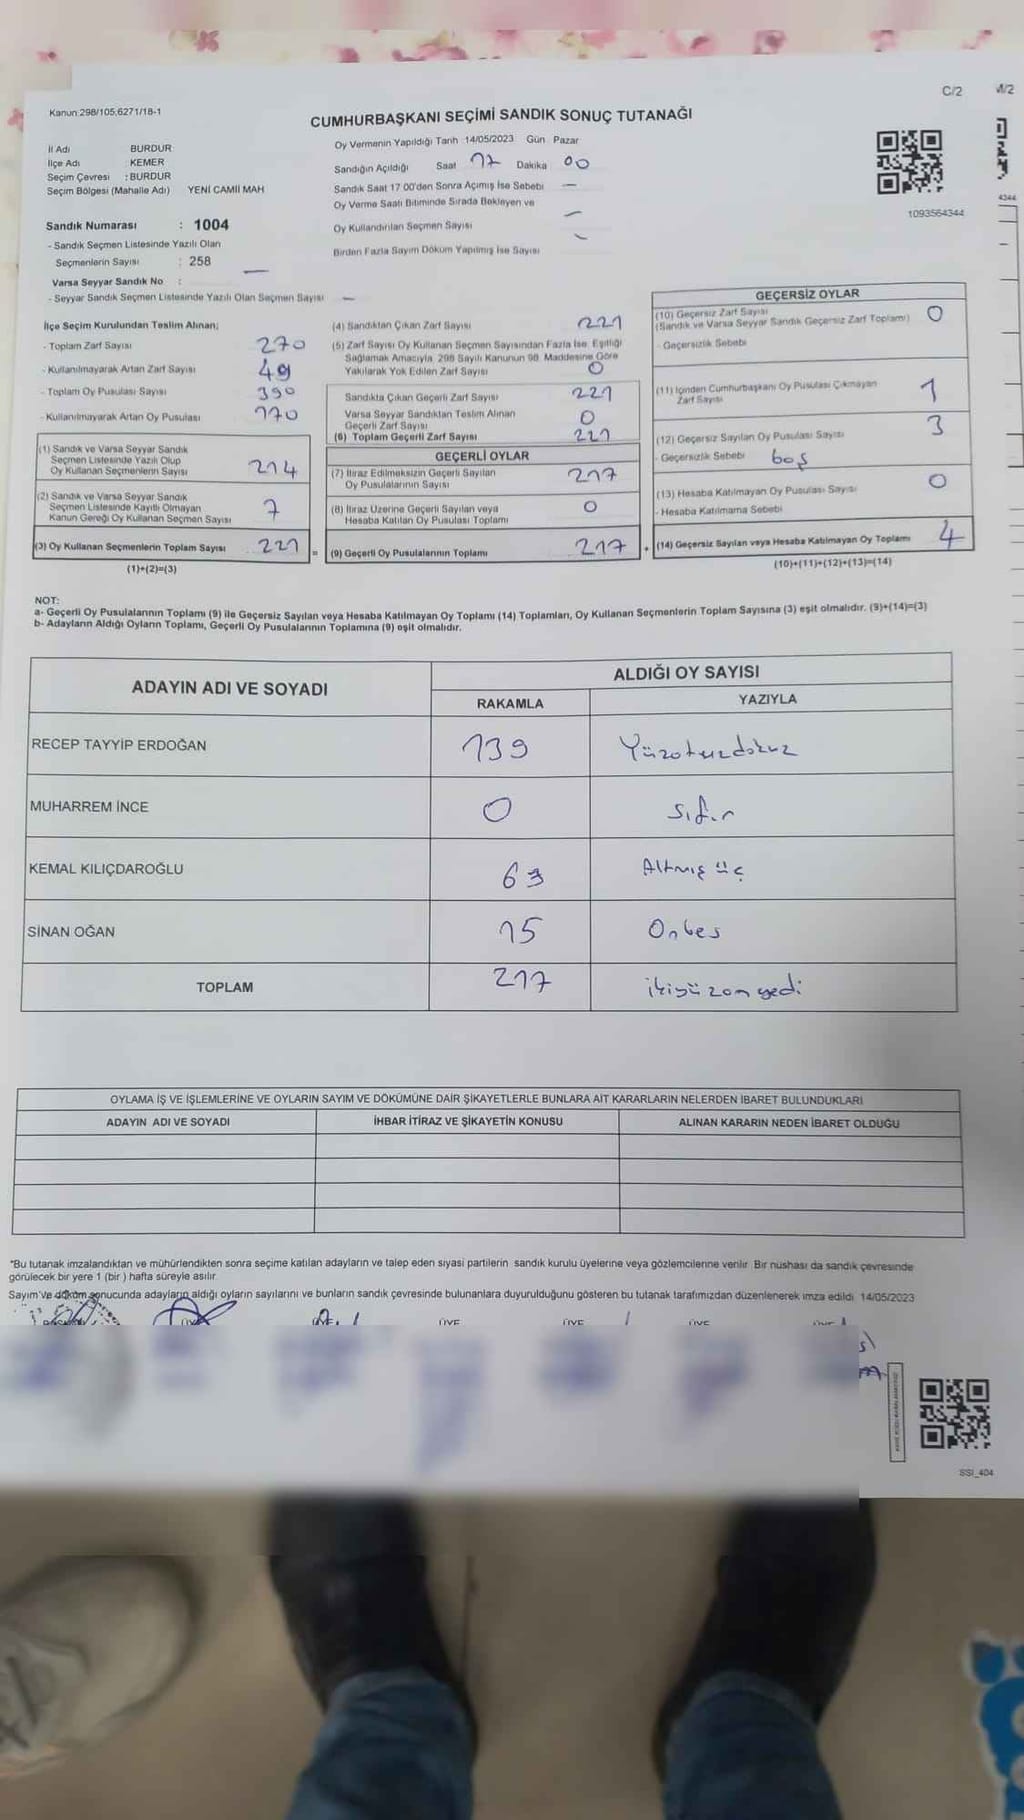 C/2
M/2
Kanun:298/105;6271/18-1
CUMHURBAŞKANI SEÇİMİ SANDIK SONUÇ TUTANAĞI
İl Adı BURDUR
İlçe Adı : KEMER
Seçim Çevresi : BURDUR
Seçim Bölgesi (Mahalle Adı) YENİ CAMİİ MAH
Oy Vermenin Yapıldığı Tarih 14/05/2023 Gün Pazar
Sandığın Açıldığı Saat 17 Dakika 00
Sandık Saat 17 00'den Sonra Açımış İse Sebebi —
Oy Verme Saati Bitiminde Sırada Bekleyen ve
Oy Kullandırılan Seçmen Sayısı —
Birden Fazla Sayım Döküm Yapılmış İse Sayısı —
1093564344
4344
Sandık Numarası : 1004
- Sandık Seçmen Listesinde Yazılı Olan
Seçmenlerin Sayısı : 258
Varsa Seyyar Sandık No : —
- Seyyar Sandık Seçmen Listesinde Yazılı Olan Seçmen Sayısı —
İlçe Seçim Kurulundan Teslim Alınan;
- Toplam Zarf Sayısı 270
- Kullanılmayarak Artan Zarf Sayısı 49
- Toplam Oy Pusulası Sayısı 390
- Kullanılmayarak Artan Oy Pusulası 170
(1) Sandık ve Varsa Seyyar Sandık
Seçmen Listesinde Yazılı Olup
Oy Kullanan Seçmenlerin Sayısı 214
(2) Sandık ve Varsa Seyyar Sandık
Seçmen Listesinde Kayıtlı Olmayan
Kanun Gereği Oy Kullanan Seçmen Sayısı 7
(3) Oy Kullanan Seçmenlerin Toplam Sayısı 221
(1)+(2)=(3)
(4) Sandıktan Çıkan Zarf Sayısı 221
(5) Zarf Sayısı Oy Kullanan Seçmen Sayısından Fazla İse, Eşitliği
Sağlamak Amacıyla 298 Sayılı Kanunun 98. Maddesine Göre
Yakılarak Yok Edilen Zarf Sayısı 0
Sandıkta Çıkan Geçerli Zarf Sayısı 221
Varsa Seyyar Sandıktan Teslim Alınan
Geçerli Zarf Sayısı 0
(6) Toplam Geçerli Zarf Sayısı 221
GEÇERLİ OYLAR
(7) İtiraz Edilmeksizin Geçerli Sayılan
Oy Pusulalarının Sayısı 217
(8) İtiraz Üzerine Geçerli Sayılan veya
Hesaba Katılan Oy Pusulası Toplamı 0
= (9) Geçerli Oy Pusulalarının Toplamı 217 +
GEÇERSİZ OYLAR
(10) Geçersiz Zarf Sayısı
(Sandık ve Varsa Seyyar Sandık Geçersiz Zarf Toplamı) 0
- Geçersizlik Sebebi
(11) İçinden Cumhurbaşkanı Oy Pusulası Çıkmayan
Zarf Sayısı 1
(12) Geçersiz Sayılan Oy Pusulası Sayısı 3
- Geçersizlik Sebebi boş
(13) Hesaba Katılmayan Oy Pusulası Sayısı 0
- Hesaba Katılmama Sebebi
(14) Geçersiz Sayılan veya Hesaba Katılmayan Oy Toplamı 4
(10)+(11)+(12)+(13)=(14)
NOT:
a- Geçerli Oy Pusulalarının Toplamı (9) ile Geçersiz Sayılan veya Hesaba Katılmayan Oy Toplamı (14) Toplamları, Oy Kullanan Seçmenlerin Toplam Sayısına (3) eşit olmalıdır. (9)+(14)=(3)
b- Adayların Aldığı Oyların Toplamı, Geçerli Oy Pusulalarının Toplamına (9) eşit olmalıdır.
ADAYIN ADI VE SOYADI
ALDIĞI OY SAYISI
RAKAMLA YAZIYLA
RECEP TAYYİP ERDOĞAN 139 Yüzotuzdokuz
MUHARREM İNCE 0 sıfır
KEMAL KILIÇDAROĞLU 63 Altmış üç
SİNAN OĞAN 15 Onbeş
TOPLAM 217 ikiyüzonyedi
OYLAMA İŞ VE İŞLEMLERİNE VE OYLARIN SAYIM VE DÖKÜMÜNE DAİR ŞİKAYETLERLE BUNLARA AİT KARARLARIN NELERDEN İBARET BULUNDUKLARI
ADAYIN ADI VE SOYADI İHBAR İTİRAZ VE ŞİKAYETİN KONUSU ALINAN KARARIN NEDEN İBARET OLDUĞU
*Bu tutanak imzalandıktan ve mühürlendikten sonra seçime katılan adayların ve talep eden siyasi partilerin sandık kurulu üyelerine veya gözlemcilerine verilir. Bir nüshası da sandık çevresinde
görülecek bir yere 1 (bir ) hafta süreyle asılır.
Sayım ve döküm sonucunda adayların aldığı oyların sayılarını ve bunların sandık çevresinde bulunanlara duyurulduğunu gösteren bu tutanak tarafımızdan düzenlenerek imza edildi. 14/05/2023
ÜYE ÜYE ÜYE
SSI_404